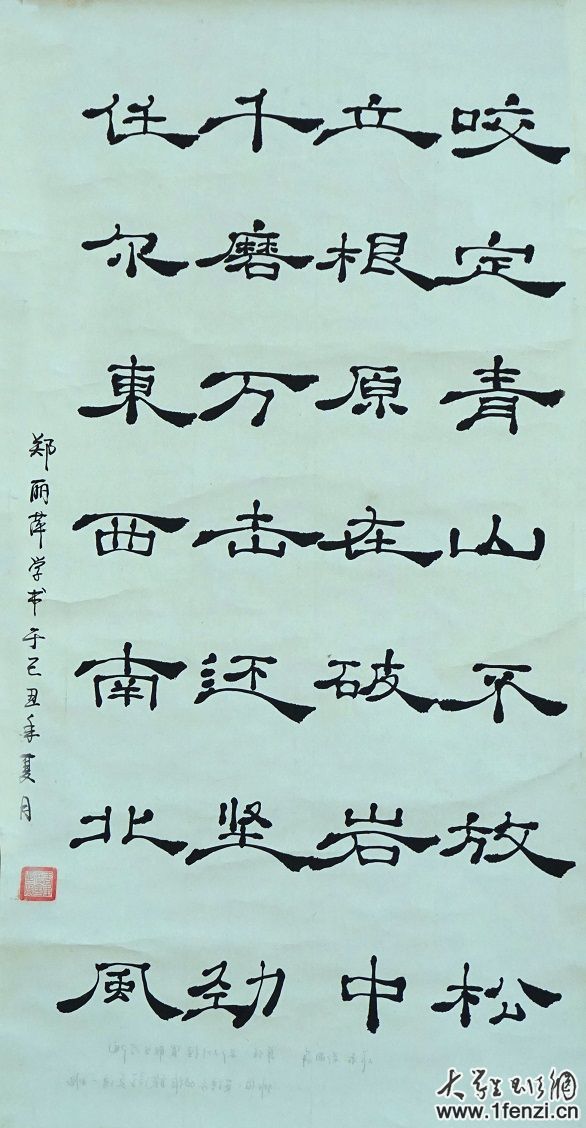 咬定青山不放松
立根原在破岩中
千磨万击还坚劲
任尔東西南北風
郑丽萍学书于己丑年夏月
大学生书法網
www.1fenzi.cn